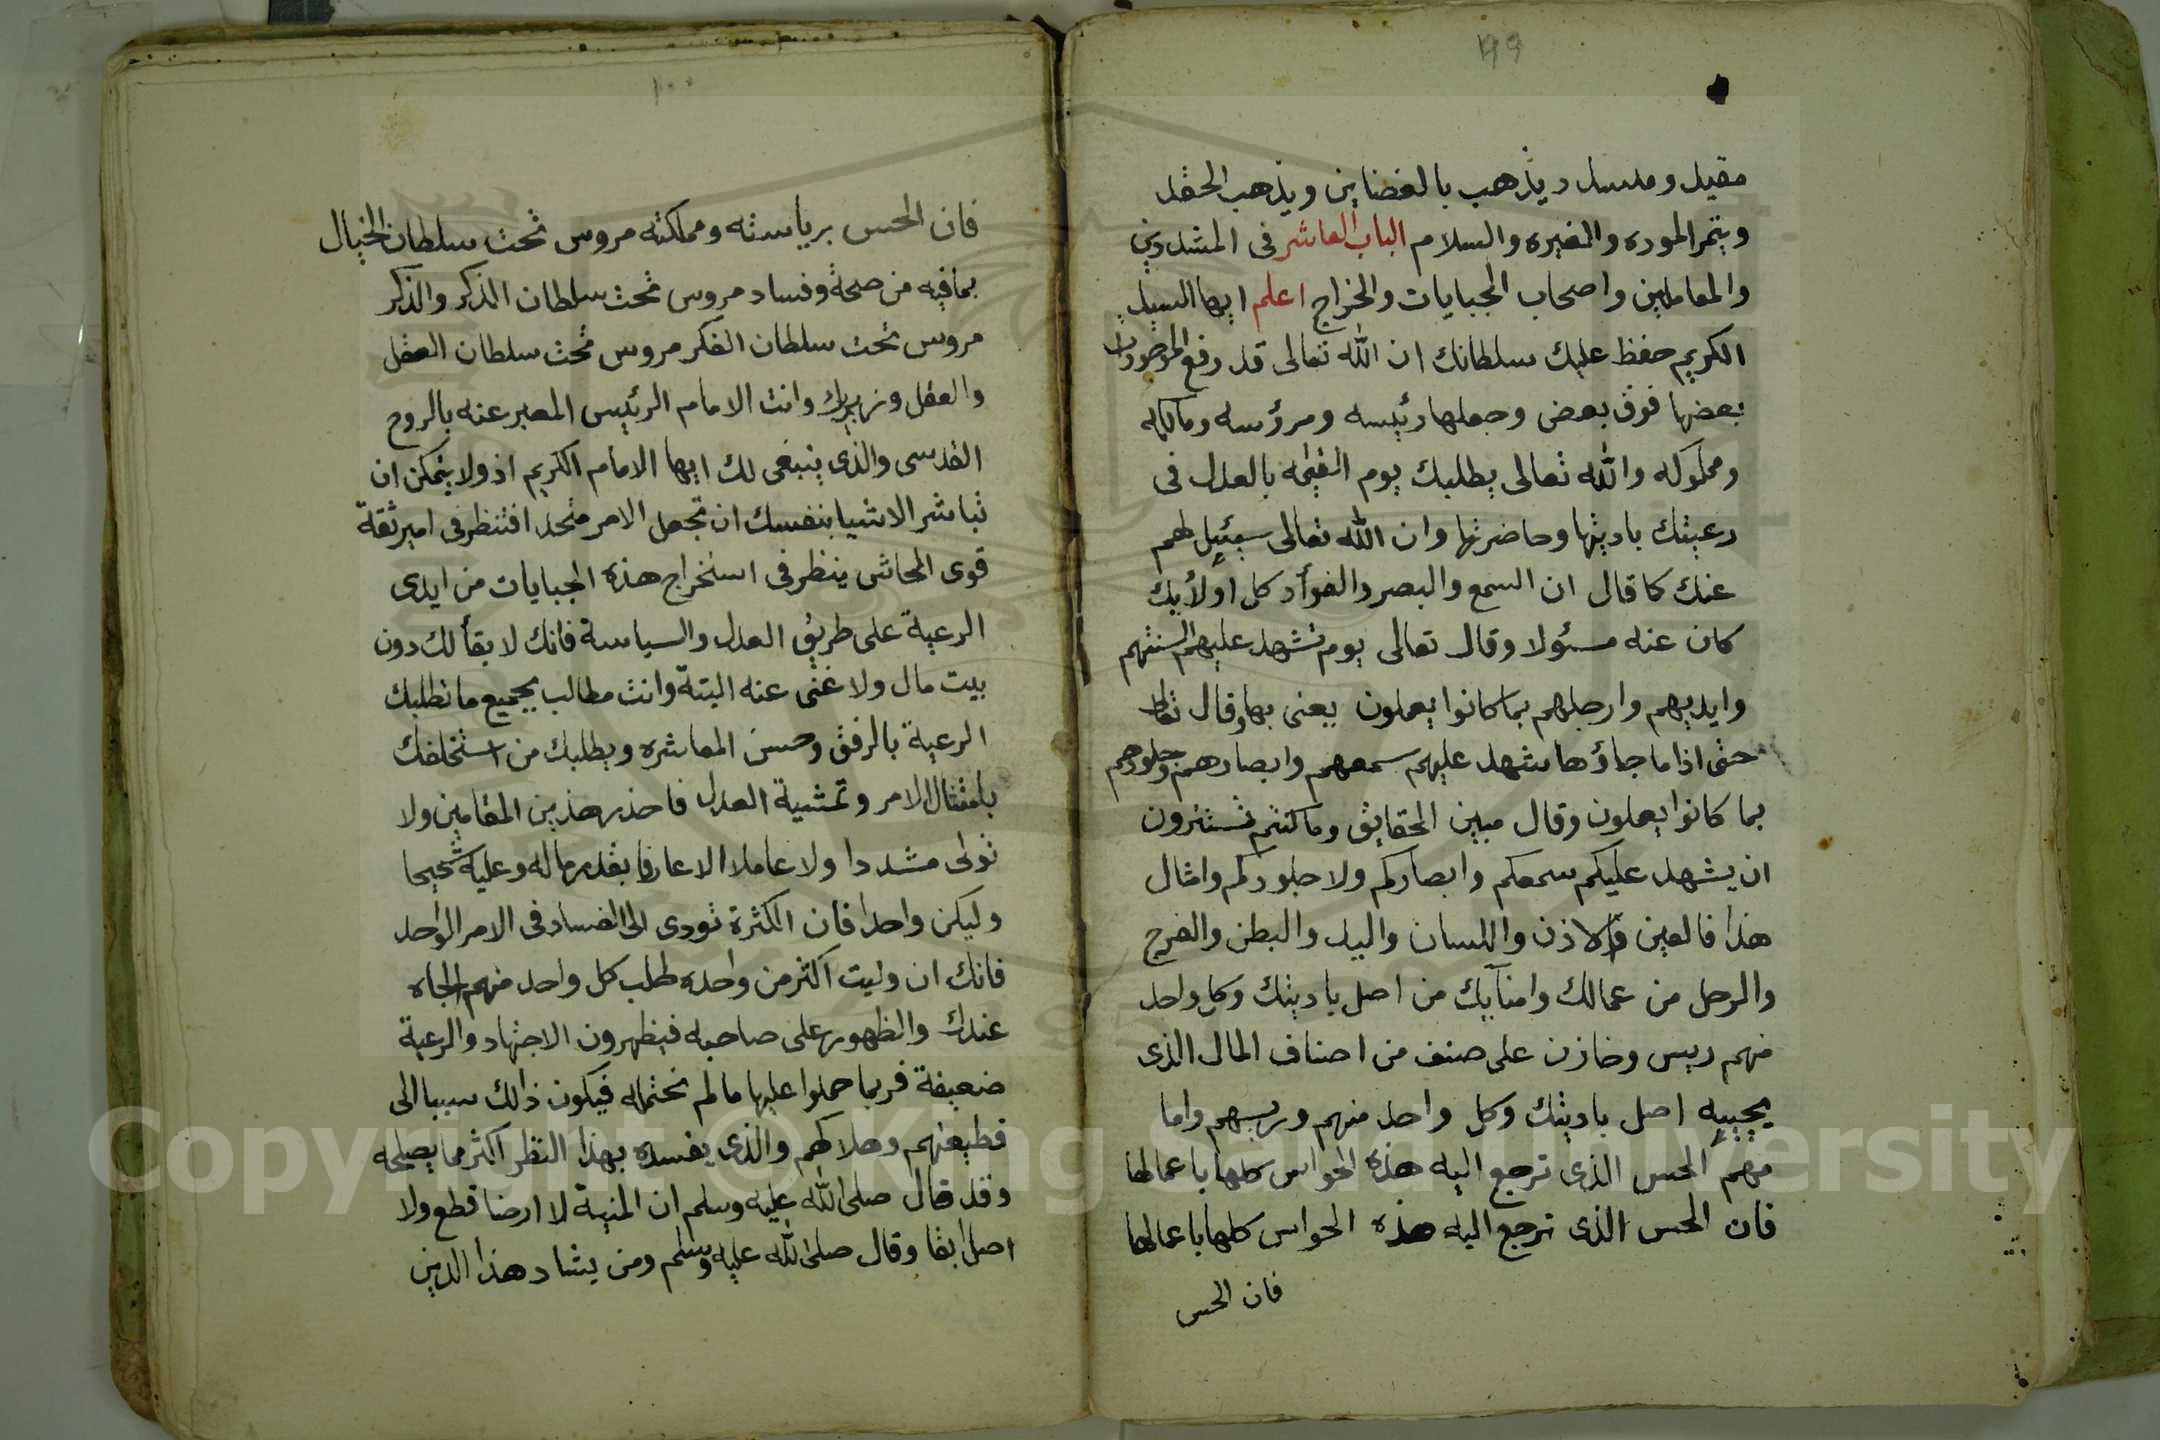 ٩٩
مقيل ومنسل ويذهب بالغضاين ويذهب الحقد
ويتمر الموده والغيره والسلام الباب العاشر فى المشددين
والمعاملين واصحاب الجبايات والخراج اعلم ايها السيد
الكريم حفظ عليك سلطانك ان الله تعالى قد رفع الموجودات
بعضها فوق بعض وجعلها رئيسه ومرؤسه ومالكه
ومملوكه والله تعالى يطلبك يوم القيمه بالعدل فى
رعيتك باديتها وحاضرتها وان الله تعالى سيئيل لهم
عنك كما قال ان السمع والبصر والفوأد كل اولأيك
كان عنه مسئولا وقال تعالى يوم تشهد عليهم السنتهم
وايديهم وارجلهم بما كانوا يعملون يعنى بها وقال تعالى
حتى اذا ما جاؤها شهد عليهم سمعهم وابصارهم وجلودهم
بما كانوا يعلون وقال مبين الحقايق وما كنتم تستترون
ان يشهد عليكم سمعكم وابصاركم ولا جلودكم وامثال
هذا فالعين والاذن واللسان واليد والبطن والفرج
والرجل من عمالك وامنآيك من اصل باديتك وكل واحد
منهم ريس وخازن على صنف من اصناف المال الذى
يجبيه اصل باديتك وكل واحد منهم وربهم واما
مهم الحس الذى ترجع اليه هذه الحواس كلها باعمالها
فان الحس الذى ترجع اليه هذه الحواس كلها باعمالها
فان الحس
١٠٠
فان الحس برياسته ومملكته مروس تحت سلطان الخيال
بمافيه من صحة وفساد مروس تحت سلطان الذكر والذكر
مروس تحت سلطان الفكر مروس تحت سلطان العقل
والعقل وزيرك وانت الامام الرئيس المعبر عنه بالروح
القدسى والذى ينبغى لك ايها الامام الكريم اذ ولا يتمكن ان
تباشر الاشيا بنفسك ان تجعل الامر متحدا فتنظر فى امير ثقة
قوى المحاشى ينظر فى استخراج هذه الجبايات من ايدى
الرعية على طريق العدل والسياسة فانك لا بقأ لك دون
بيت مال ولا غنى عنه البتة وانت مطالب بجميع ما تطلبك
الرعية بالرفق وحسن المعاشره ويطلبك من استخلفك
بامتثال الامر وتمشية العدل فاحذر هذين المقامين ولا
تولى مشددا ولا عاملا الا عارفا بقدر ما له وعليه شحيحا
وليكن واحدا فان الكثرة تودى الى الفساد فى الامر الواحد
فانك ان وليت اكثر من واحده طلب كل واحد منهم الجاه
عندك والظهور على صاحبه فيظهرون الاجتهاد والرعية
ضعيفة فربما حملوا عليها ما لم تحتمله فيكون ذالك سببا الى
قطيعتهم وهلاكهم والذى يفسده بهذا النظر اكثر مما يصلحه
وقد قال صلى الله عليه وسلم ان المنبة لا ارضا قطع ولا
اصل ابقا وقال صلى الله عليه وسلم ومن يشاد هذا الدين
Copyright © King Saud University